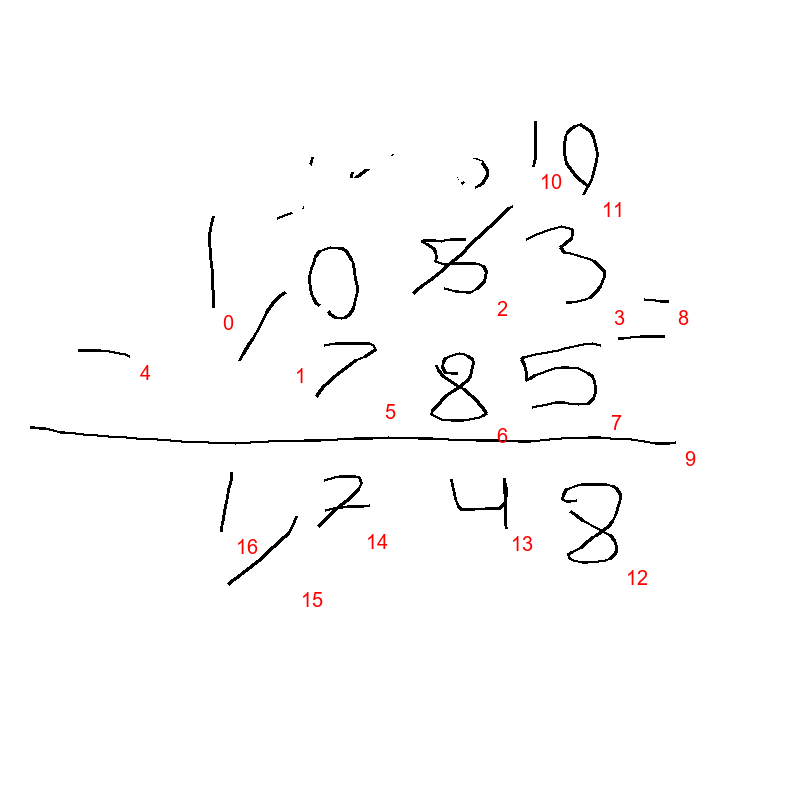 10
10 11
1,053 =
0 2 3 8
- 785
4 1 5 6 7
9
1,748
16 14 13 12
15